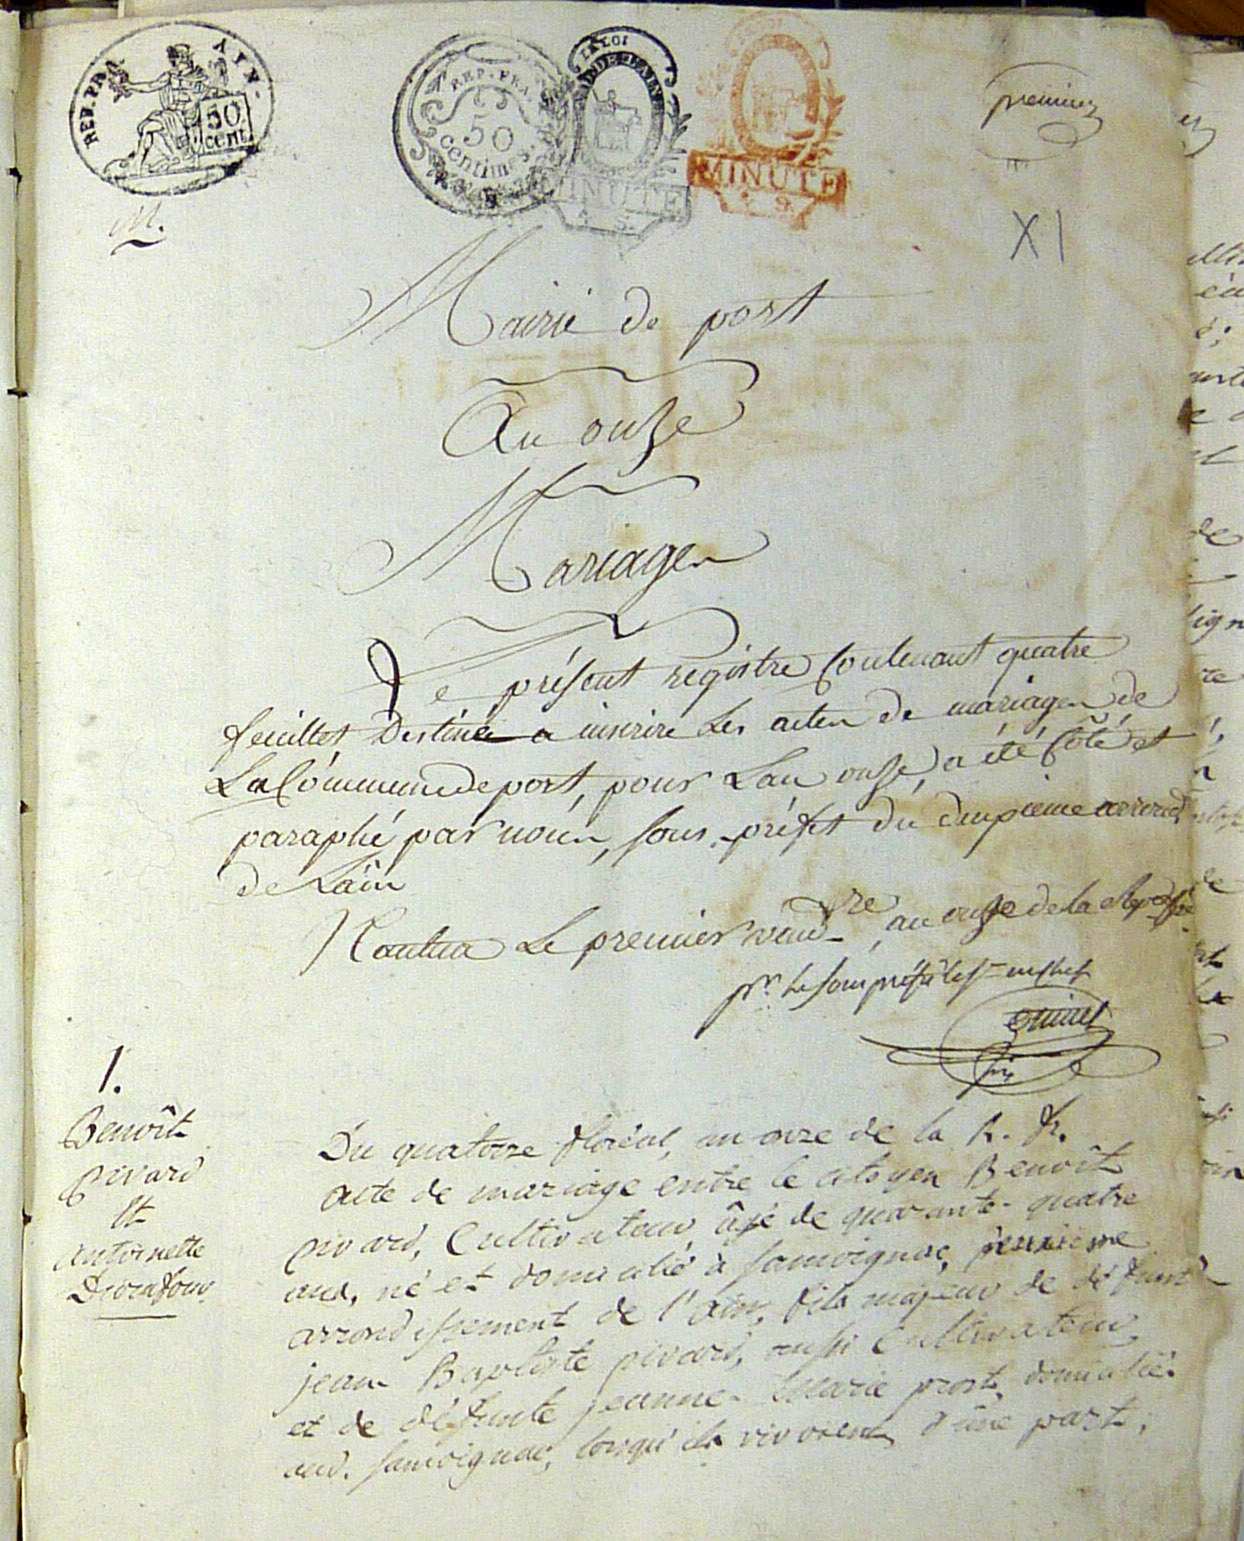 REP. FRA. AIN.
50 cent.
REP. FRA.
50
centimes
LA LOI
MINUTE
MINUTE
9.
premier
XI
Mairie de port
An onze
Mariages
Le présent registre Contenant quatre
feuillets Destiné a inscrire Les actes de mariages de
La Commune de port, pour Lan onze, a été Côté et
paraphé par nous, sous-préfet du deuxieme arrond
de Lain
Nantua Le premier vend.re an onze de la Rep
pr. le sous préfet
1.
Benoît
pivard
et
antoinette
Du quatorze floréal, an onze de la R. fr.
acte de mariage entre le citoyen Benoît
pivard, Cultivateur, âgé de quarante-quatre
ans, né et domicilié à Samoignac,
arrondissement de l'ain, fils majeur de défunt
jean Baptiste pivard, aussi Cultivateur,
et de défunte jeanne-Marie prost, domiciliés
aud. Samoignac, lorsqu'ils vivoient, d'une part,